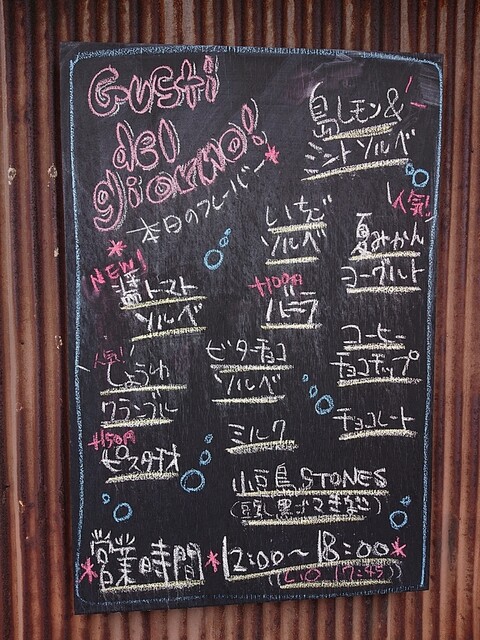 Gusti
del
giorno!
本日のフレーバー
島レモン&
ミントソルベ
人気!
いちご
ソルベ
夏みかん
ヨーグルト
NEW!
塩トマト
ソルベ
+100円
バニラ
コーヒー
チョコチップ
人気!
しょうゆ
クランブル
ビターチョコ
ソルベ
チョコレート
+150円
ピスタチオ
ミルク
小豆島 STONES
(豆乳黒ゴマきなこ)
営業時間 12:00〜18:00
(L.O 17:45)